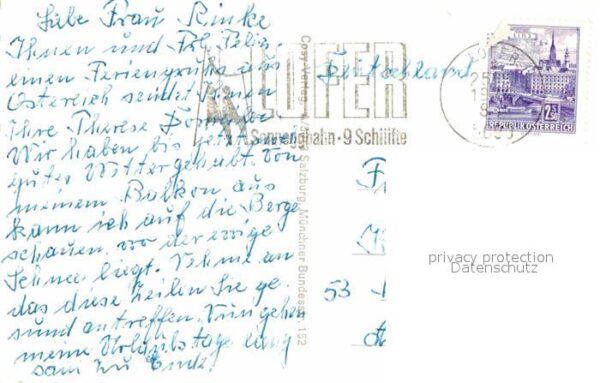 Liebe Frau Rinke
Ihnen und Frl. Felix
einen Feriengruß aus
Österreich sendet Ihnen
Ihre Therese
Wir haben bis jetzt
gutes Wetter gehabt. Von
meinem Balkon aus
kann ich auf die Berge
schauen, wo der ewige
Schnee liegt. Nehme an
das diese Zeilen Sie ge-
sund antreffen. Nun gehen
meine Urlaubstage lang
sam zu Ende.
Cosy-Verlag, Salzburg, Münchner Bundesstr. 152
LOFER
Sesselbahn · 9 Schilifte
Deutschland
53
2 S
REPUBLIK ÖSTERREICH
privacy protection
Datenschutz